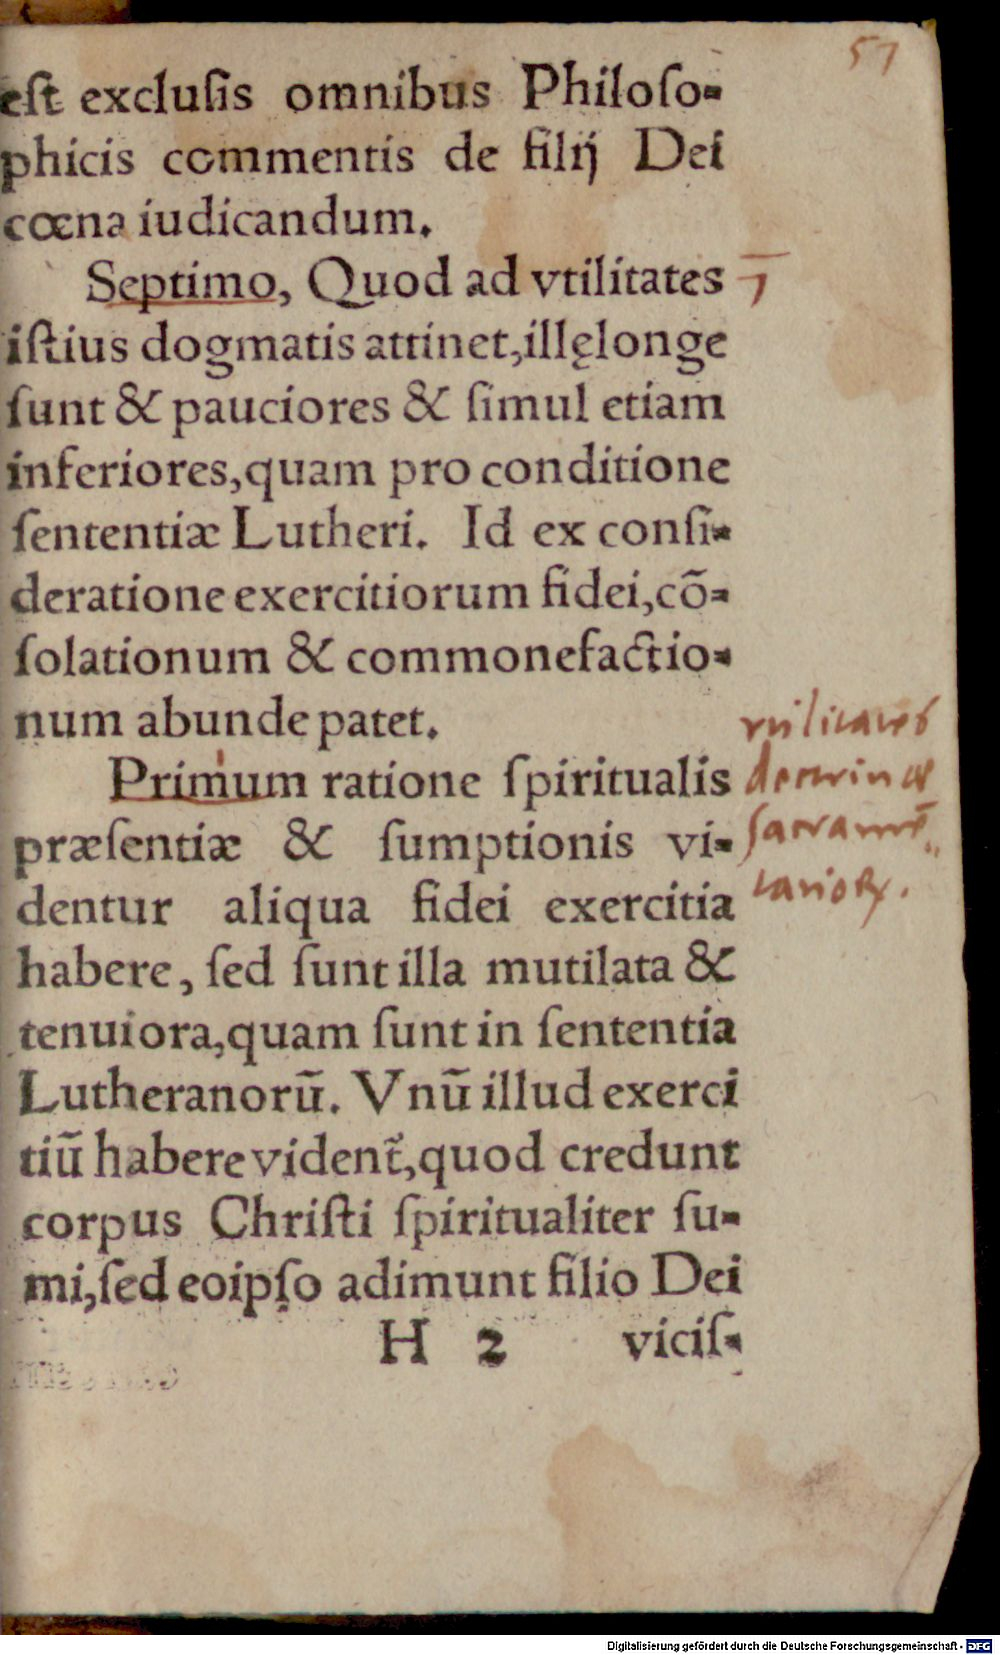 57
est exclusis omnibus Philoso-
phicis commentis de filij Dei
cœna iudicandum.
Septimo, Quod ad vtilitates
7
istius dogmatis attinet, illę longe
sunt & pauciores & simul etiam
inferiores, quam pro conditione
sententiæ Lutheri. Id ex consi-
deratione exercitiorum fidei, cõ-
solationum & commonefactio-
num abunde patet.
Primum ratione spiritualis
præsentiæ & sumptionis vi-
dentur aliqua fidei exercitia
habere, sed sunt illa mutilata &
tenuiora, quam sunt in sententia
Lutheranorũ. Vnũ illud exerci
tiũ habere vident᷑, quod credunt
corpus Christi spiritualiter su-
mi, sed eoipso adimunt filio Dei
H 2 vicis-
vtilitates
doctrinæ
sacramē„
tarioꝝ.
Digitalisierung gefördert durch die Deutsche Forschungsgemeinschaft - DFG